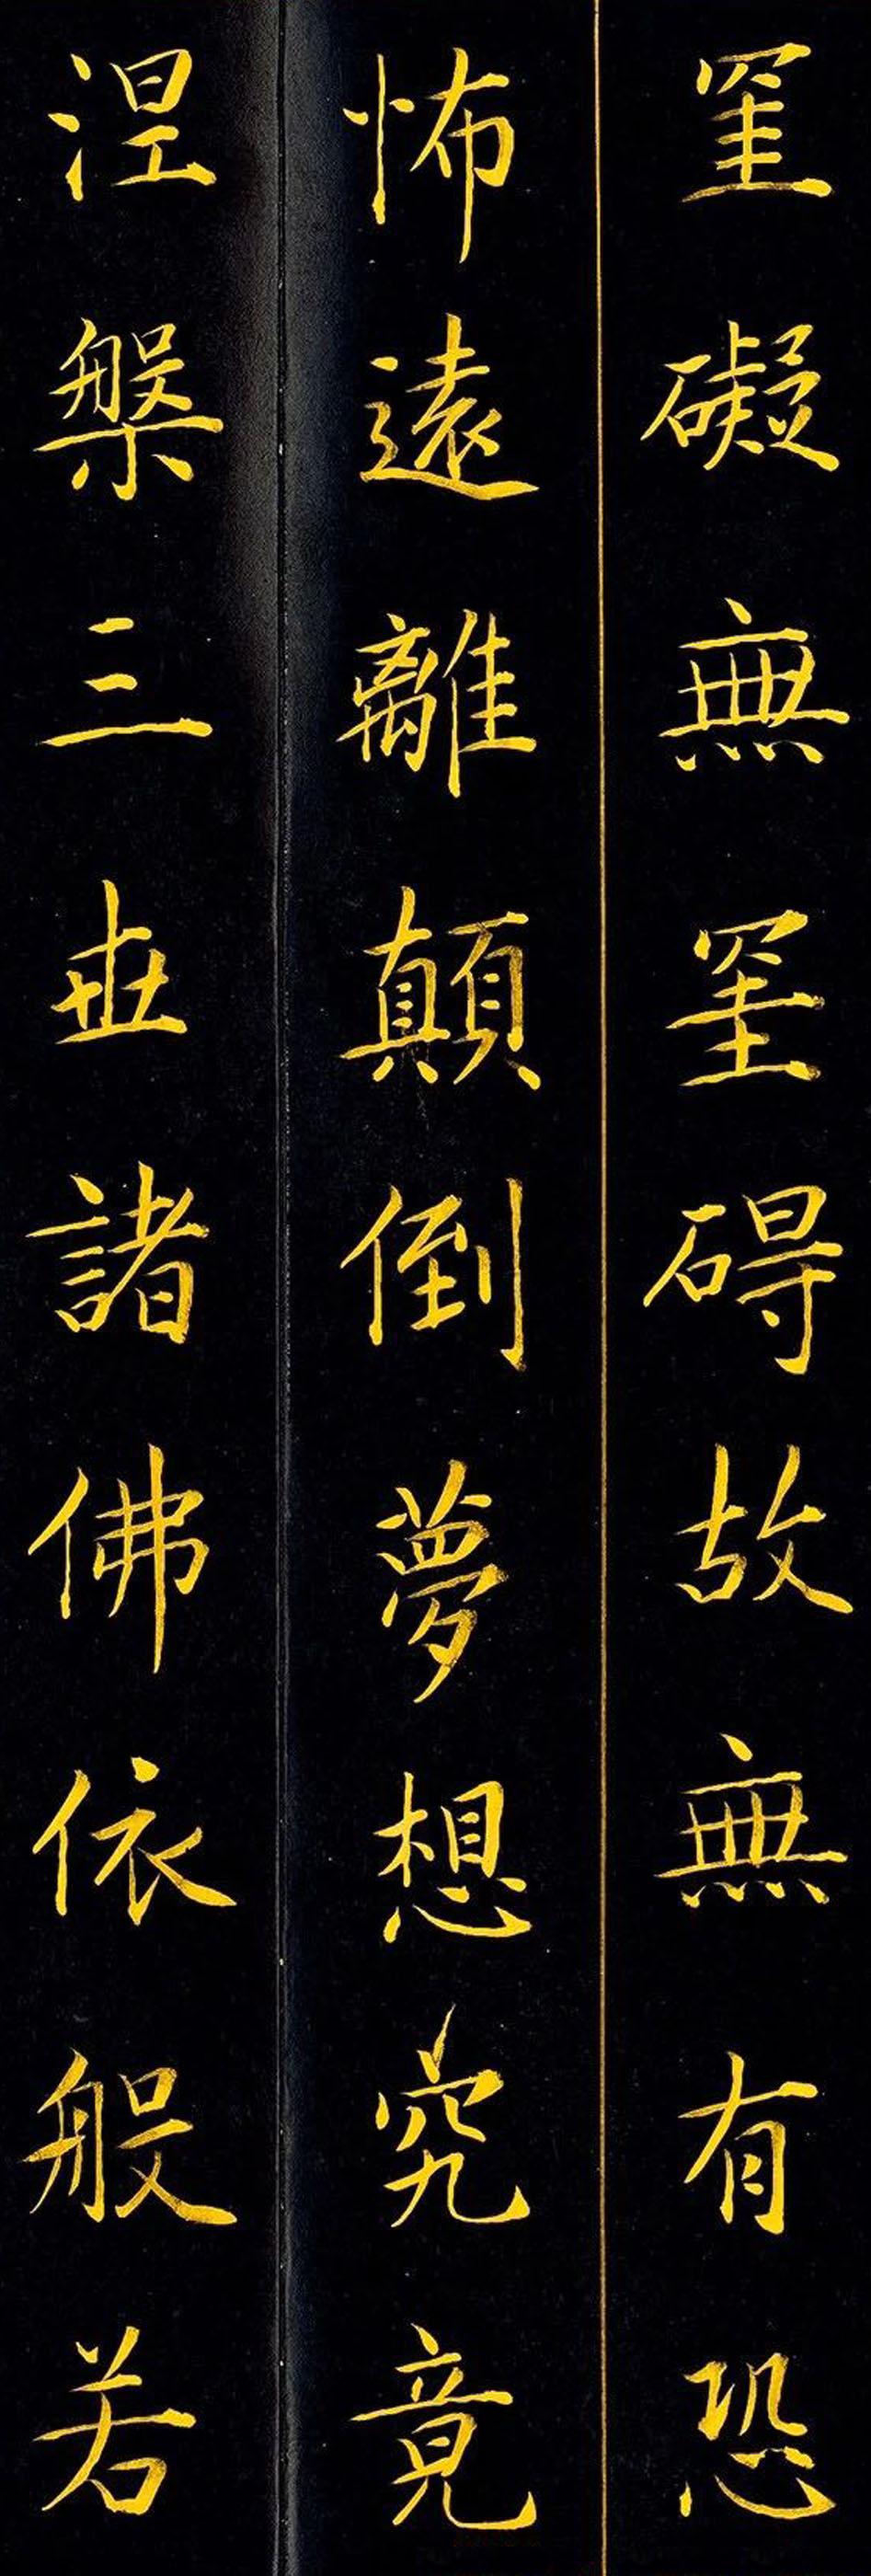 罣礙無罣碍故無有恐
怖遠離顛倒夢想究竟
涅槃三世諸佛依般若